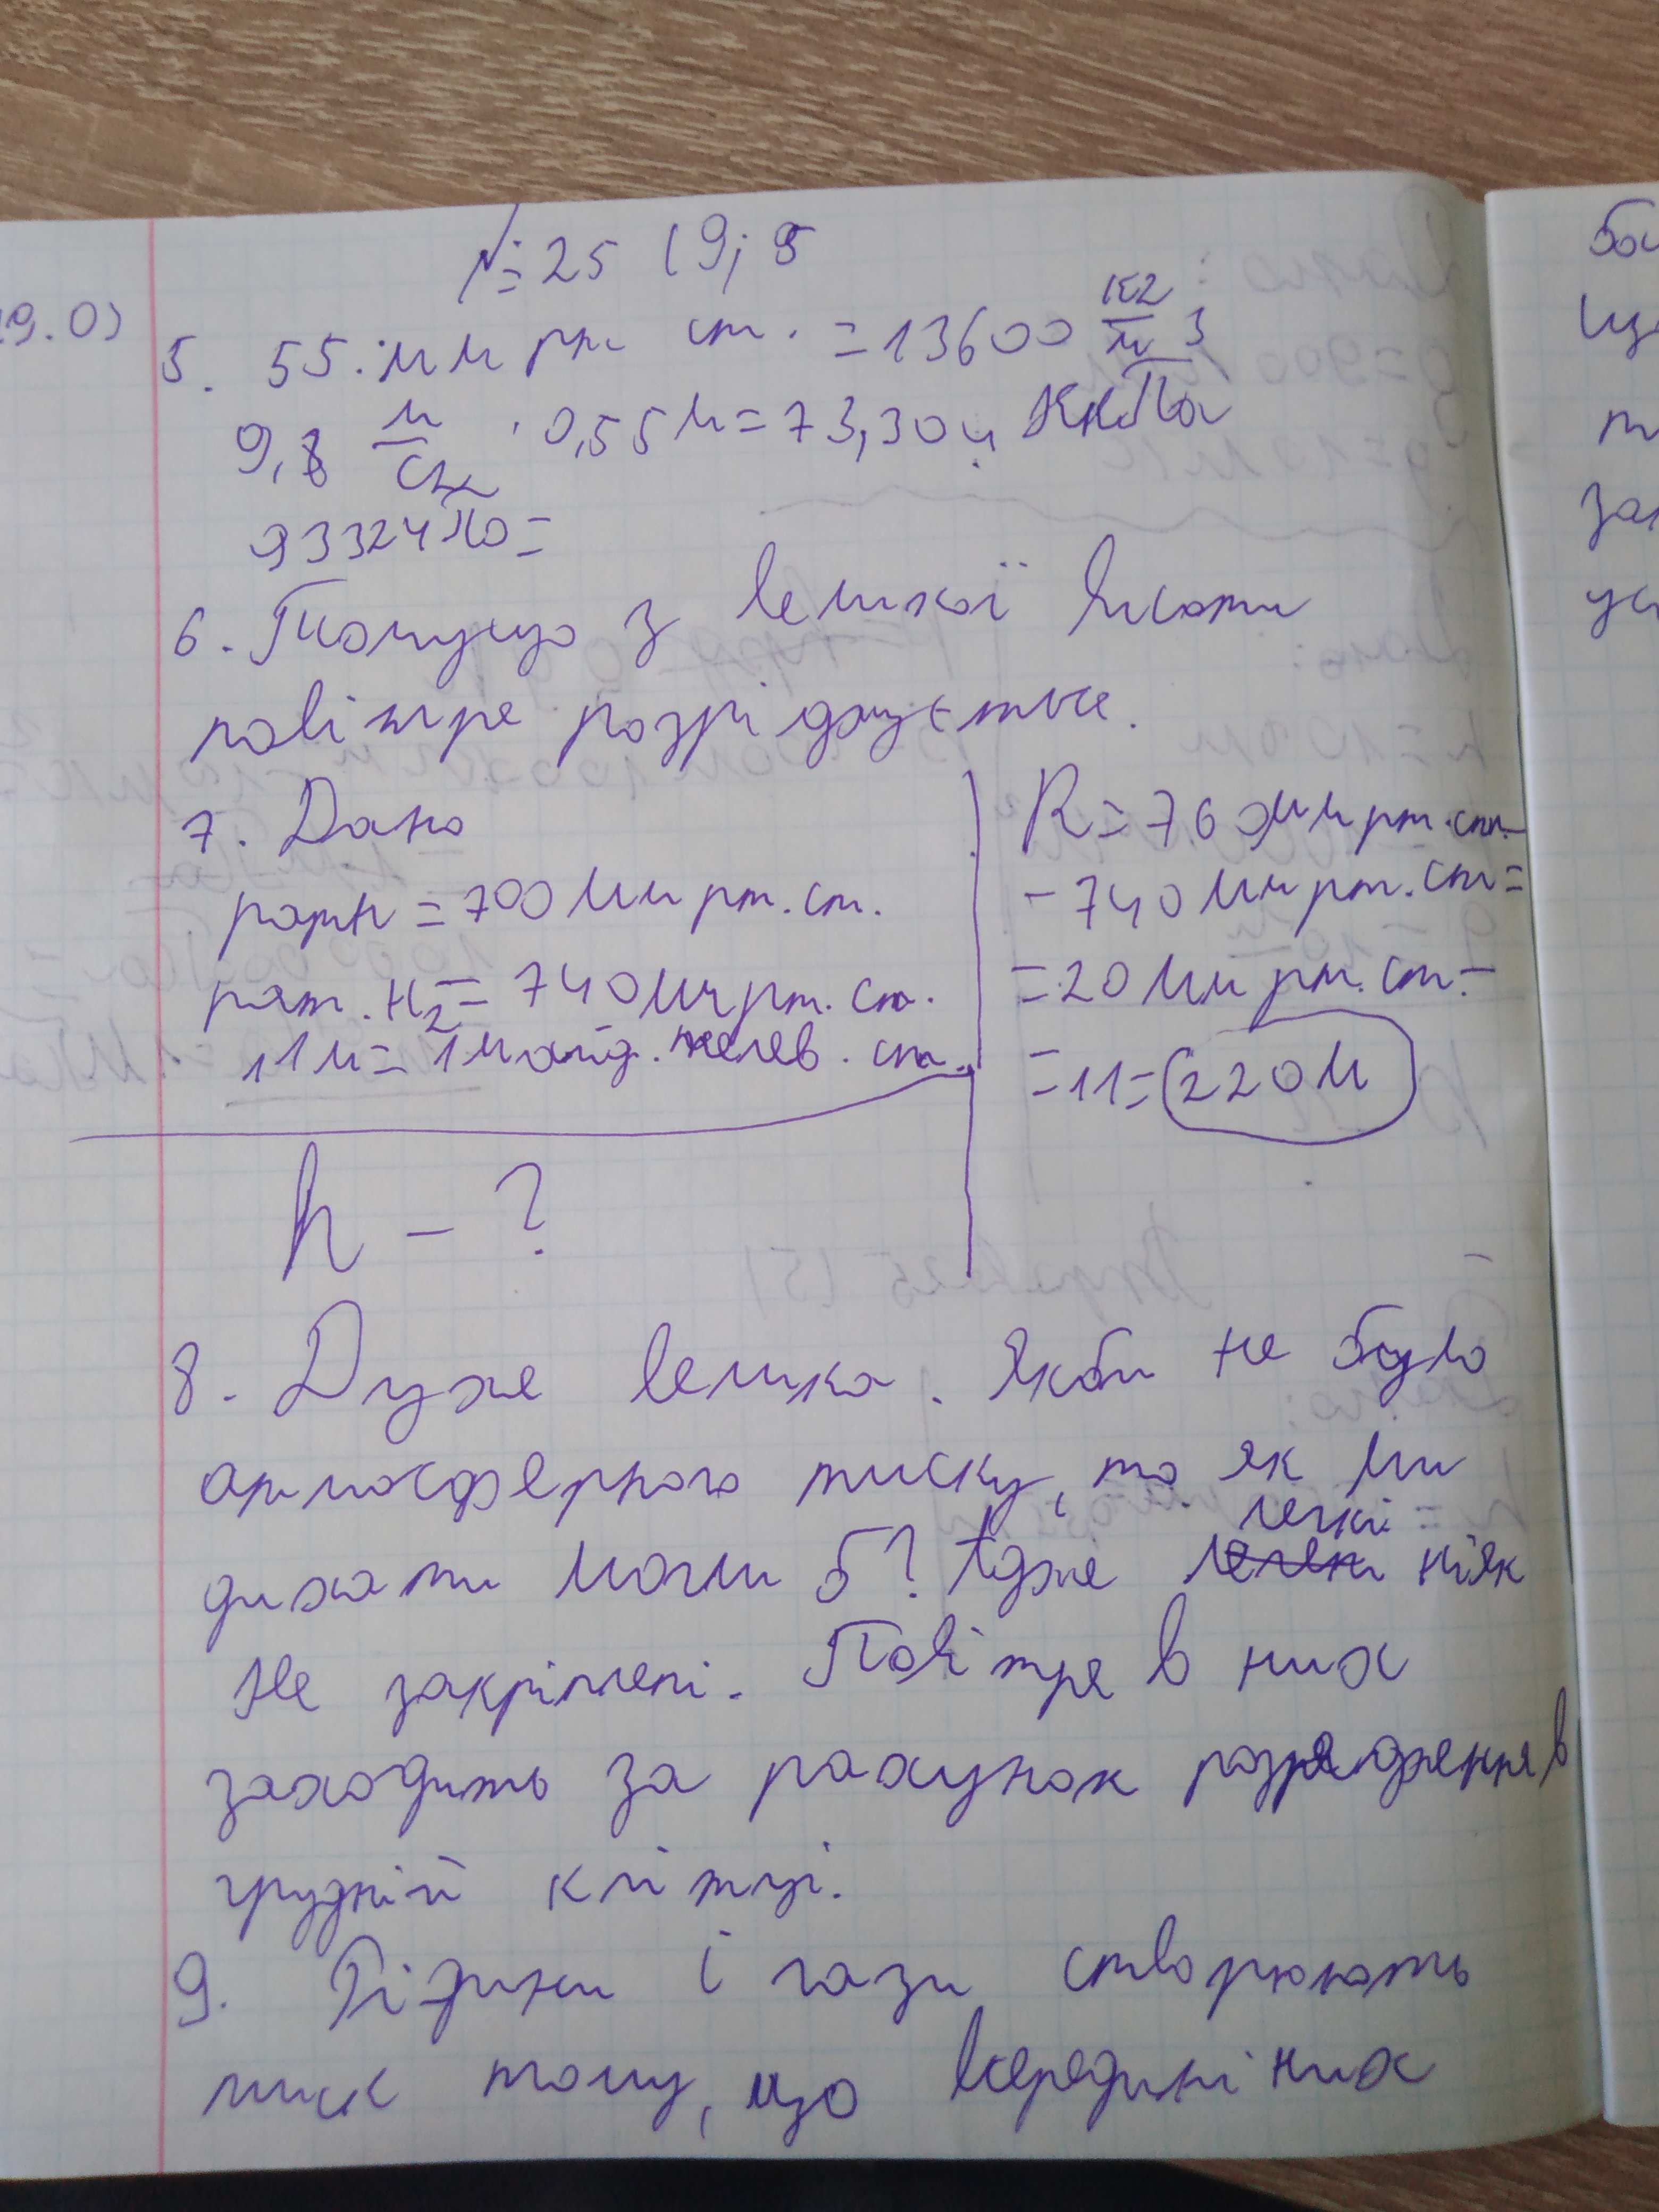 № 25 (9; 8
9.0)
5. 55. мм рт ст. = 13600 кг/м3
9,8 м/с · 0,55 м = 73,304 КПа
93324 Па =
6. Тому що з великої висоти
повітре розріджується.
7. Дано
ратн = 700 мм рт. ст.
рат. н2 = 740 мм рт. ст.
11м = 1 ст.
h - ?
R = 760 мм рт. ст. -
- 740 мм рт. ст =
= 20 мм рт. ст. =
= 11 = 220 м
8. Дуже велика. Якби не було
атмосферного тиску, то як ми
дихати могли б? Адже легкі ніяк
не закріплені. Повітря в них
заходить за рахунок розрядження в
грудній клітці.
9. Рідини і гази створюють
тиск тому, що всередині них